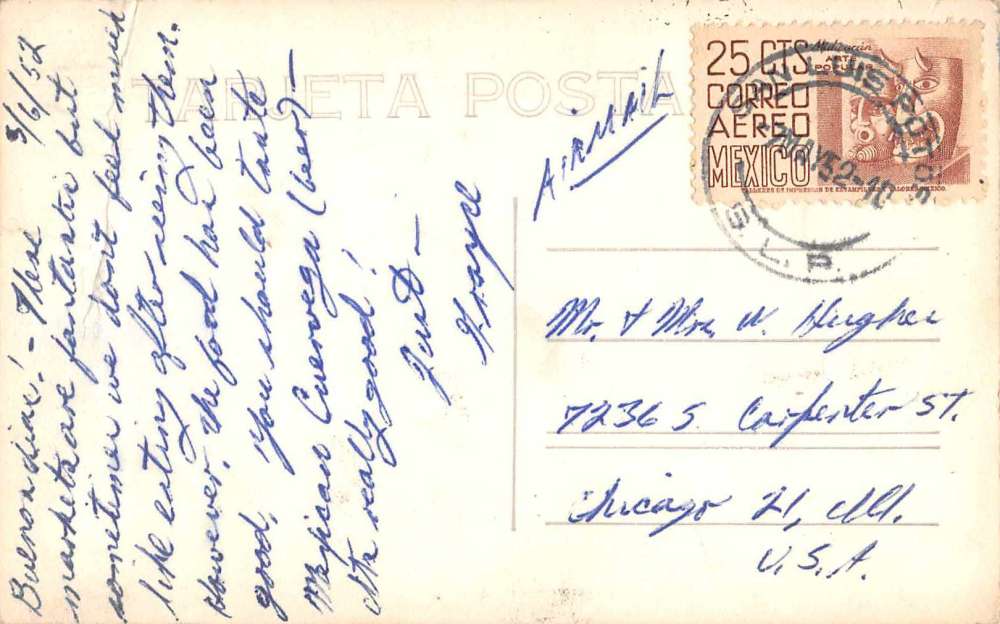 TARJETA POSTAL
3/6/52
Buenos dias! - These
markets are fantastic but
sometimes we don't feel much
like eating after seeing them.
However, the food has been
good. You should taste
Mexican Cuervega (beer) -
its really good!
AIRMAIL
25 CTS
CORREO
AEREO
MEXICO
Michoacán
ARTE
POPULAR
TALLERES DE IMPRESION DE ESTAMPILLAS Y VALORES-MEXICO.
SAN LUIS POTOSI
MAY 52-10
S. L. P.
Mr. & Mrs. W. Hughes
7236 S. Carpenter St.
Chicago 21, Ill.
U.S.A.